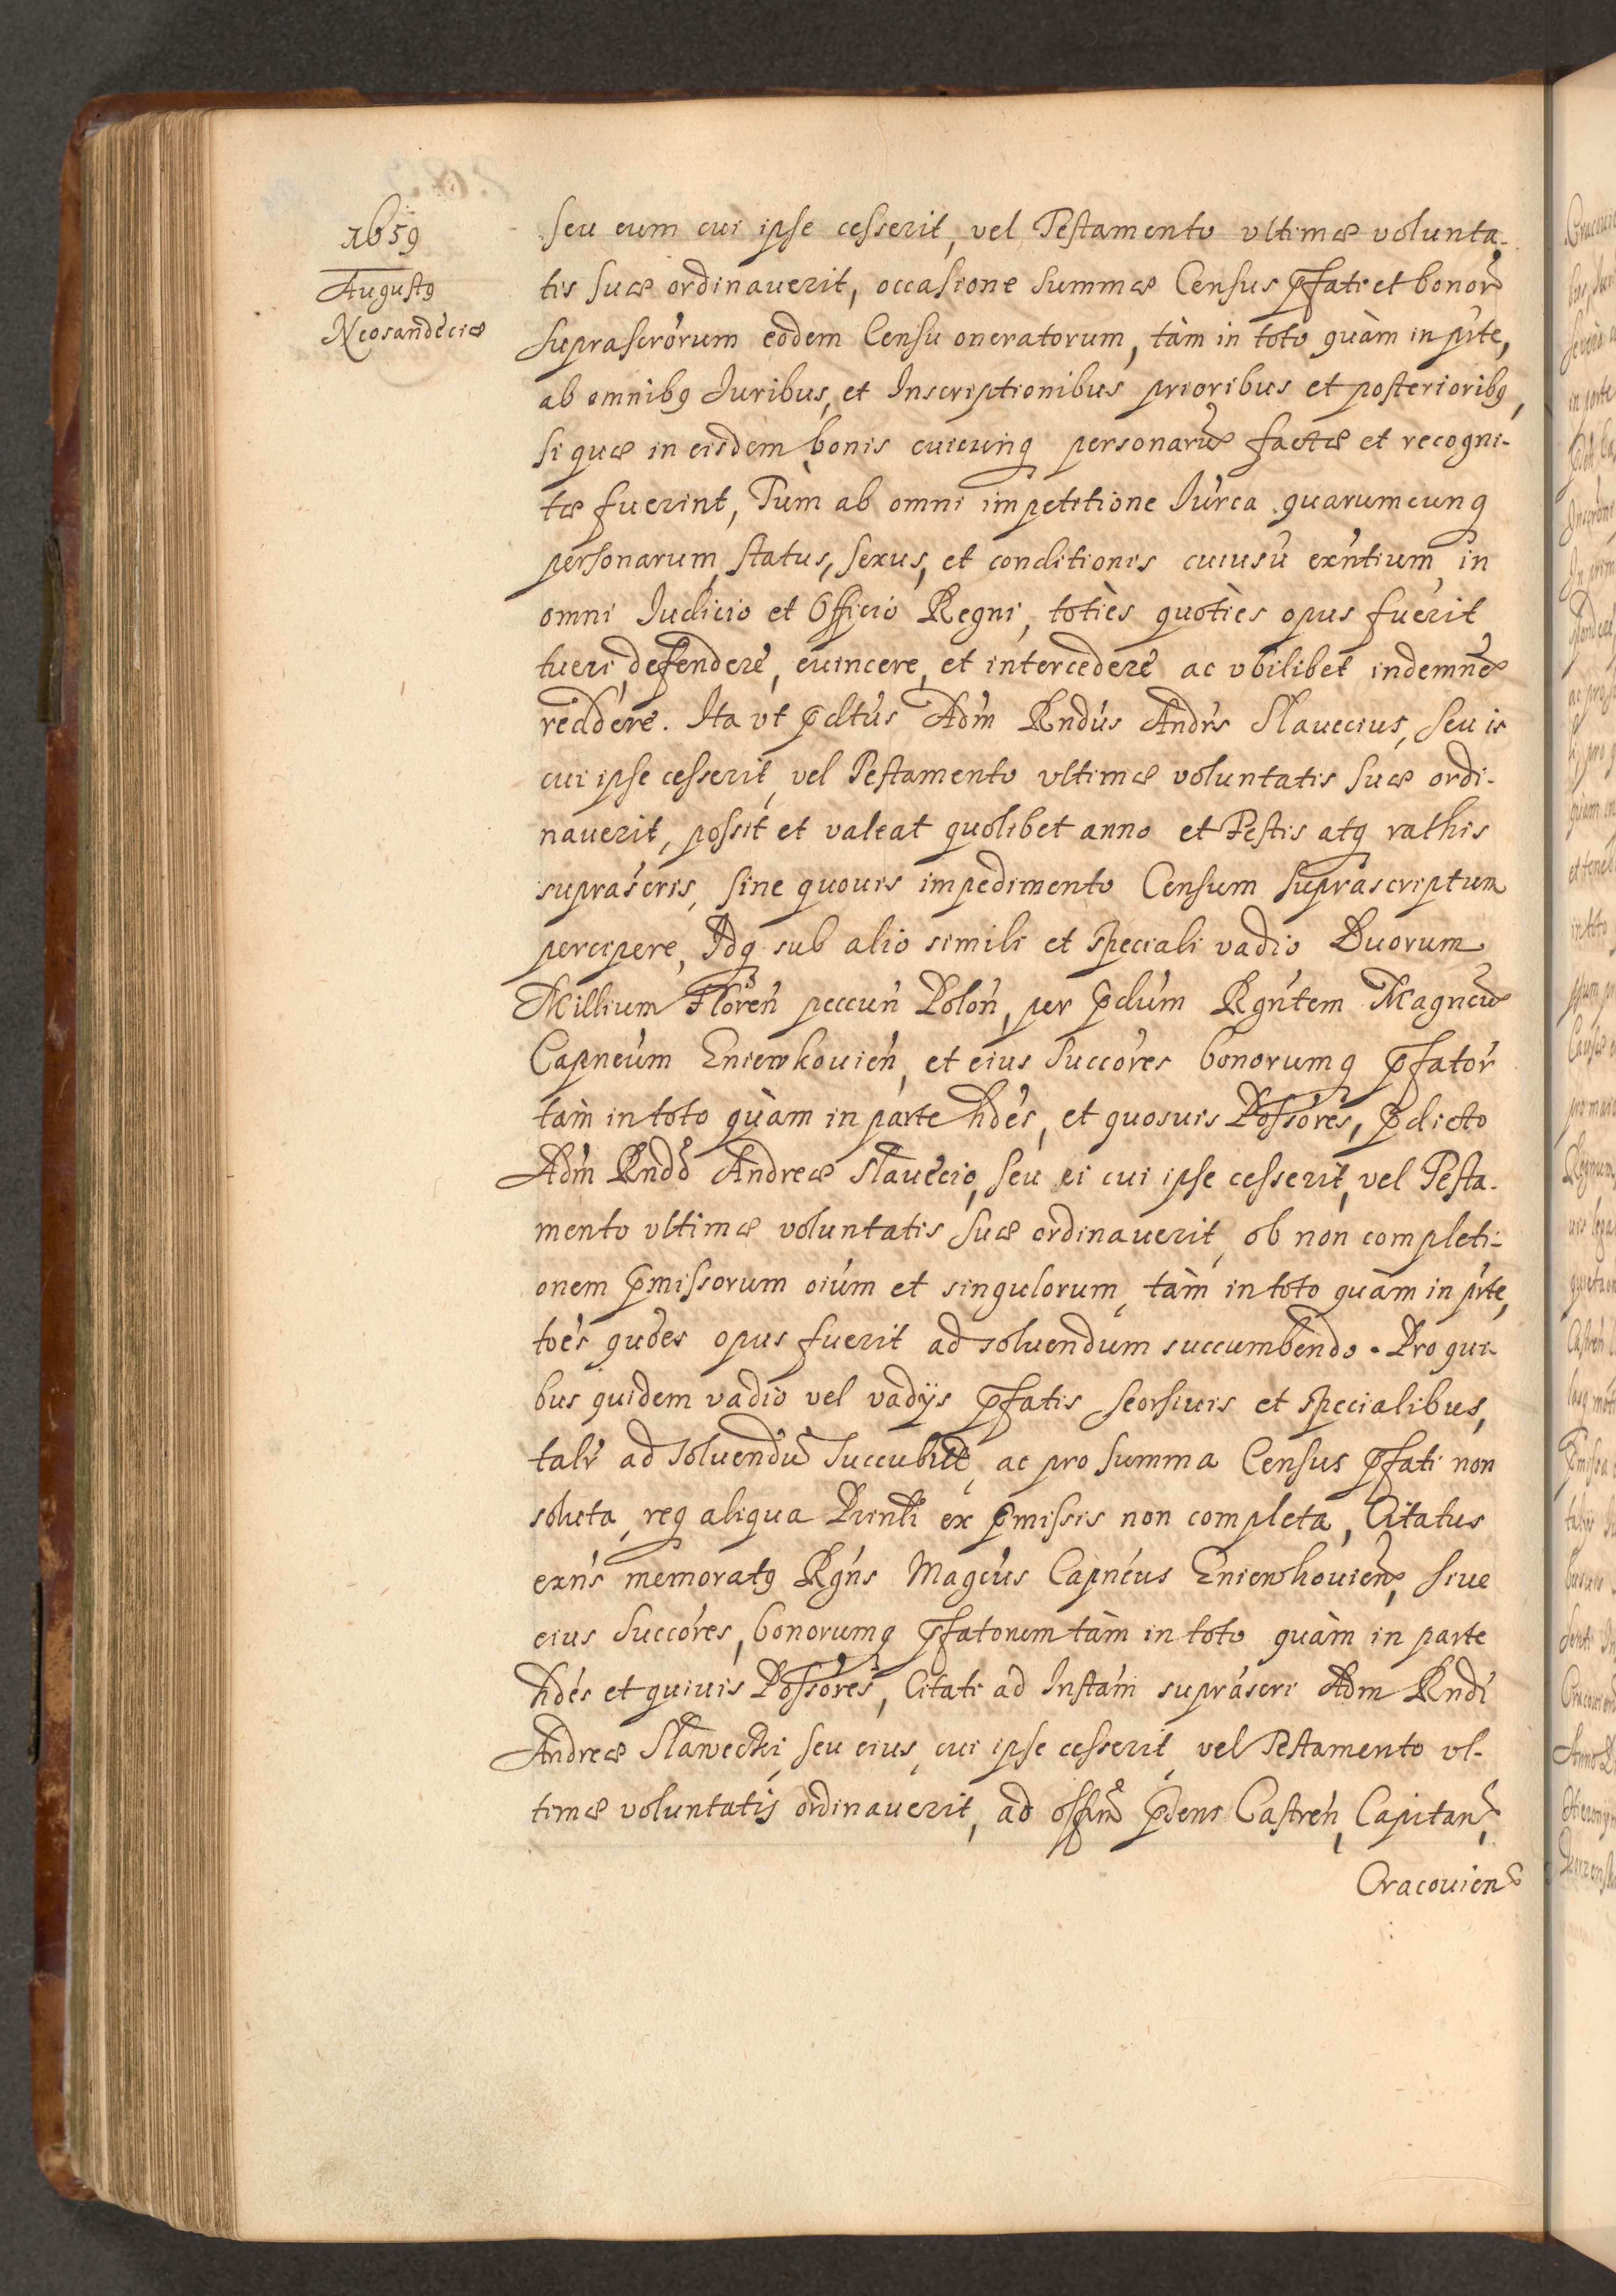 1659
Augustus
Neosandeciæ
seu eum cui ipse cesserit, vel Testamento ultimæ volunta-
tis suæ ordinaverit, occasione summæ Census pfati et bonor
suprascrorum eodem Censu oneratorum, tàm in toto quàm in prte,
ab omnibq Iuribus, et Inscriptionibus prioribus et posterioribq,
si quæ in eisdem bonis cuicunq personaru factæ et recogni-
tæ fuerint, Tùm ab omni impetitione Iurca quarumcunq
personarum, status, sexus, et conditionis cuiusu exntium, in
omni Iudicio et Officio Regni, toties quoties opus fuerit
tueri, defendere, euincere, et intercedere ac vbilibet indemne
reddere. Ita vt pdtus Adm Rndus Andrs Slauecius, seu is
cui ipse cesserit, vel Testamento vltimæ voluntatis suæ ordi-
nauerit, possit et valeat quolibet anno et Festis atq rathis
suprascris, sine quouis impedimento Censum suprascriptum
percipere, Idq sub alio simili et speciali vadio Duorum
Millium Floren peccun Polon, per pdum Rgntem Magncu
Capneum Gniewkouien, et eius Succores bonorumq pfator
tàm in toto quàm in parte hdes, et quosuis Possores, pdicto
Adm Rndo Andreæ Slauecio, seu ei cui ipse cesserit, vel Testa-
mento vltimæ voluntatis suæ ordinauerit, ob non completi-
onem pmissorum oium et singulorum, tàm in toto quàm in prte,
toes quoes opus fuerit ad soluendum succumbendo. Pro qui-
bus quidem vadio vel vadijs pfatis seorsiuis et specialibus,
talr ad soluendu succubit, ac pro summa Census pfati non
soluta, req aliqua Pinti ex pmissis non completa, Citatus
exns memoratq Rgns Magcus Capneus Gniewkouien, siue
eius Succores, bonorumq pfatorum tàm in toto quàm in parte
hdes et quiuis Possores, Citati ad Instam suprascri Adm Rndi
Andreæ Slawecki, seu eius, cui ipse cesserit, vel Testamento vl-
timæ voluntatis ordinauerit, ad offm pdens Castren, Capitan,
Cracouien